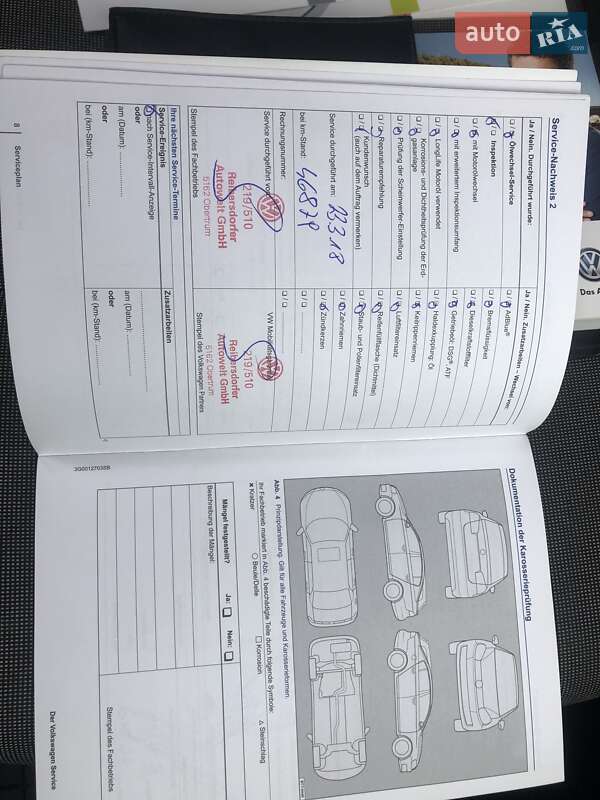 auto RIA.com
Das A
Service-Nachweis 2
Ja / Nein. Durchgeführt wurde:
Ölwechsel-Service
Inspektion
mit Motorölwechsel
mit erweitertem Inspektionsumfang
LongLife Motoröl verwendet
Korrosions- und Dichtheitsprüfung der Erd-
gasanlage
Prüfung der Scheinwerfer-Einstellung
Reparaturempfehlung
Kundenwunsch
(auch auf dem Auftrag vermerken)
Service durchgeführt am: 23318
bei km-Stand: 46879
Rechnungsnummer:
Service durchgeführt von:
219/510
Reinersdorfer
Autowelt GmbH
5162 Obertrum
Stempel des Fachbetriebs
Ja / Nein. Zusatzarbeiten – Wechsel von:
AdBlue®
Bremsflüssigkeit
Dieselkraftstofffilter
Getriebeöl: DSG®, ATF
Haldexkupplung: Öl
Keilrippenriemen
Luftfiltereinsatz
Reifenfüllflasche (Dichtmittel)
Staub- und Pollenfiltereinsatz
Zahnriemen
Zündkerzen
219/510
Reinersdorfer
Autowelt GmbH
5162 Obertrum
Stempel des Volkswagen Partners
Ihre nächsten Service-Termine
Service-Ereignis
nach Service-Intervall-Anzeige
oder
am (Datum):
oder
bei (km-Stand):
Zusatzarbeiten
am (Datum):
oder
bei (km-Stand):
8 Serviceplan
Dokumentation der Karosserieprüfung
Abb. 4 Prinzipdarstellung. Gilt für alle Fahrzeuge und Karosserieformen.
Ihr Fachbetrieb markiert in Abb. 4 beschädigte Teile durch folgende Symbole:
× Kratzer
○ Beule/Delle
□ Korrosion
△ Steinschlag
Mängel festgestellt?
Ja:
Nein:
Beschreibung der Mängel:
Stempel des Fachbetriebs
3G0012703SB
Der Volkswagen Service